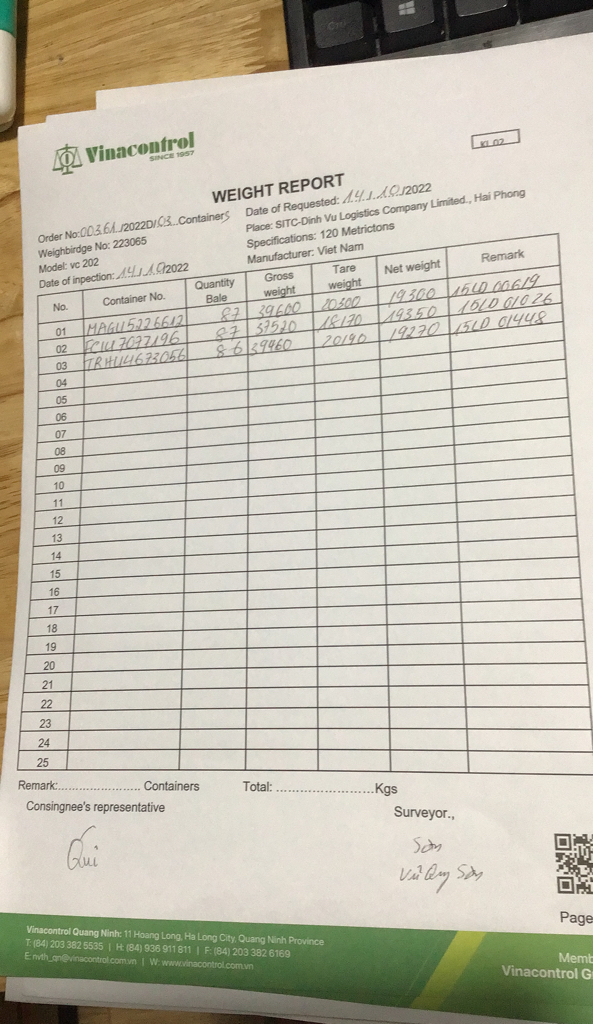 Vinacontrol
SINCE 1957
KL 02
WEIGHT REPORT
Order No: 00361 /2022D/03 Containers
Date of Requested: 14/10/2022
Weighbirdge No: 223065
Place: SITC-Dinh Vu Logistics Company Limited., Hai Phong
Model: vc 202
Specifications: 120 Metrictons
Date of inpection: 14/10/2022
Manufacturer: Viet Nam
No. Container No. Quantity Bale Gross weight Tare weight Net weight Remark
01 MAGU5226612 87 39600 20300 19300 15LD 00619
02 FCIU7077196 87 37520 18170 19350 15LD 01026
03 TRHU4673056 86 39460 20190 19270 15LD 01448
04
05
06
07
08
09
10
11
12
13
14
15
16
17
18
19
20
21
22
23
24
25
Remark:...................... Containers Total: .........................Kgs
Consingnee's representative
Surveyor.,
Qui
Sơn
Vũ Quý Sơn
Page
Vinacontrol Quang Ninh: 11 Hoang Long, Ha Long City, Quang Ninh Province
T: (84) 203 382 5535 | H: (84) 936 911 811 | F: (84) 203 382 6169
E: nvth_qn@vinacontrol.com.vn | W: www.vinacontrol.com.vn
Memb
Vinacontrol G